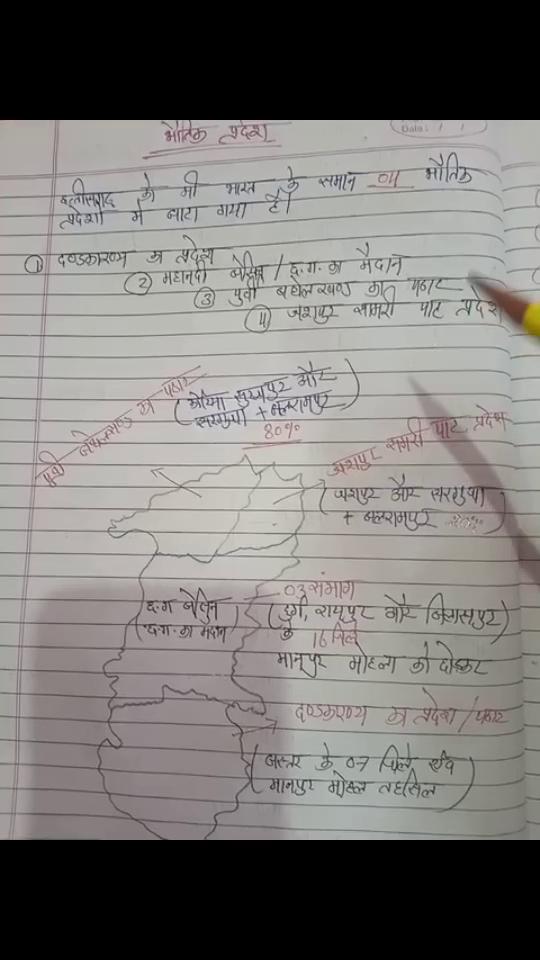 Date: / /
भौतिक प्रदेश
छत्तीसगढ़ को भी भारत के समान 04 भौतिक
प्रदेशो में बाटा गया है।
① दण्डकारण्य का प्रदेश
② महानदी बेसिन / छ.ग. का मैदान
③ पुर्वी बघेलखण्ड का पठार
④ जशपुर सामरी पाट प्रदेश
पुर्वी बघेलखण्ड का पठार
(कोरिया सुरजपुर और
सरगुजा + बलरामपुर)
80%
जशपुर समरी पाट प्रदेश
(जशपुर और सरगुजा
+ बलरामपुर
03 संभाग
छ.ग बेसिन
(छ.ग. का मैदान)
(दुर्ग, रायपुर और बिलासपुर)
के 16 जिले
मानपुर मोहला को छोडकर
दण्डकारण्य का प्रदेश / पठार
(बस्तर के 07 जिले एवं
मानपुर मोहला तहसिल)